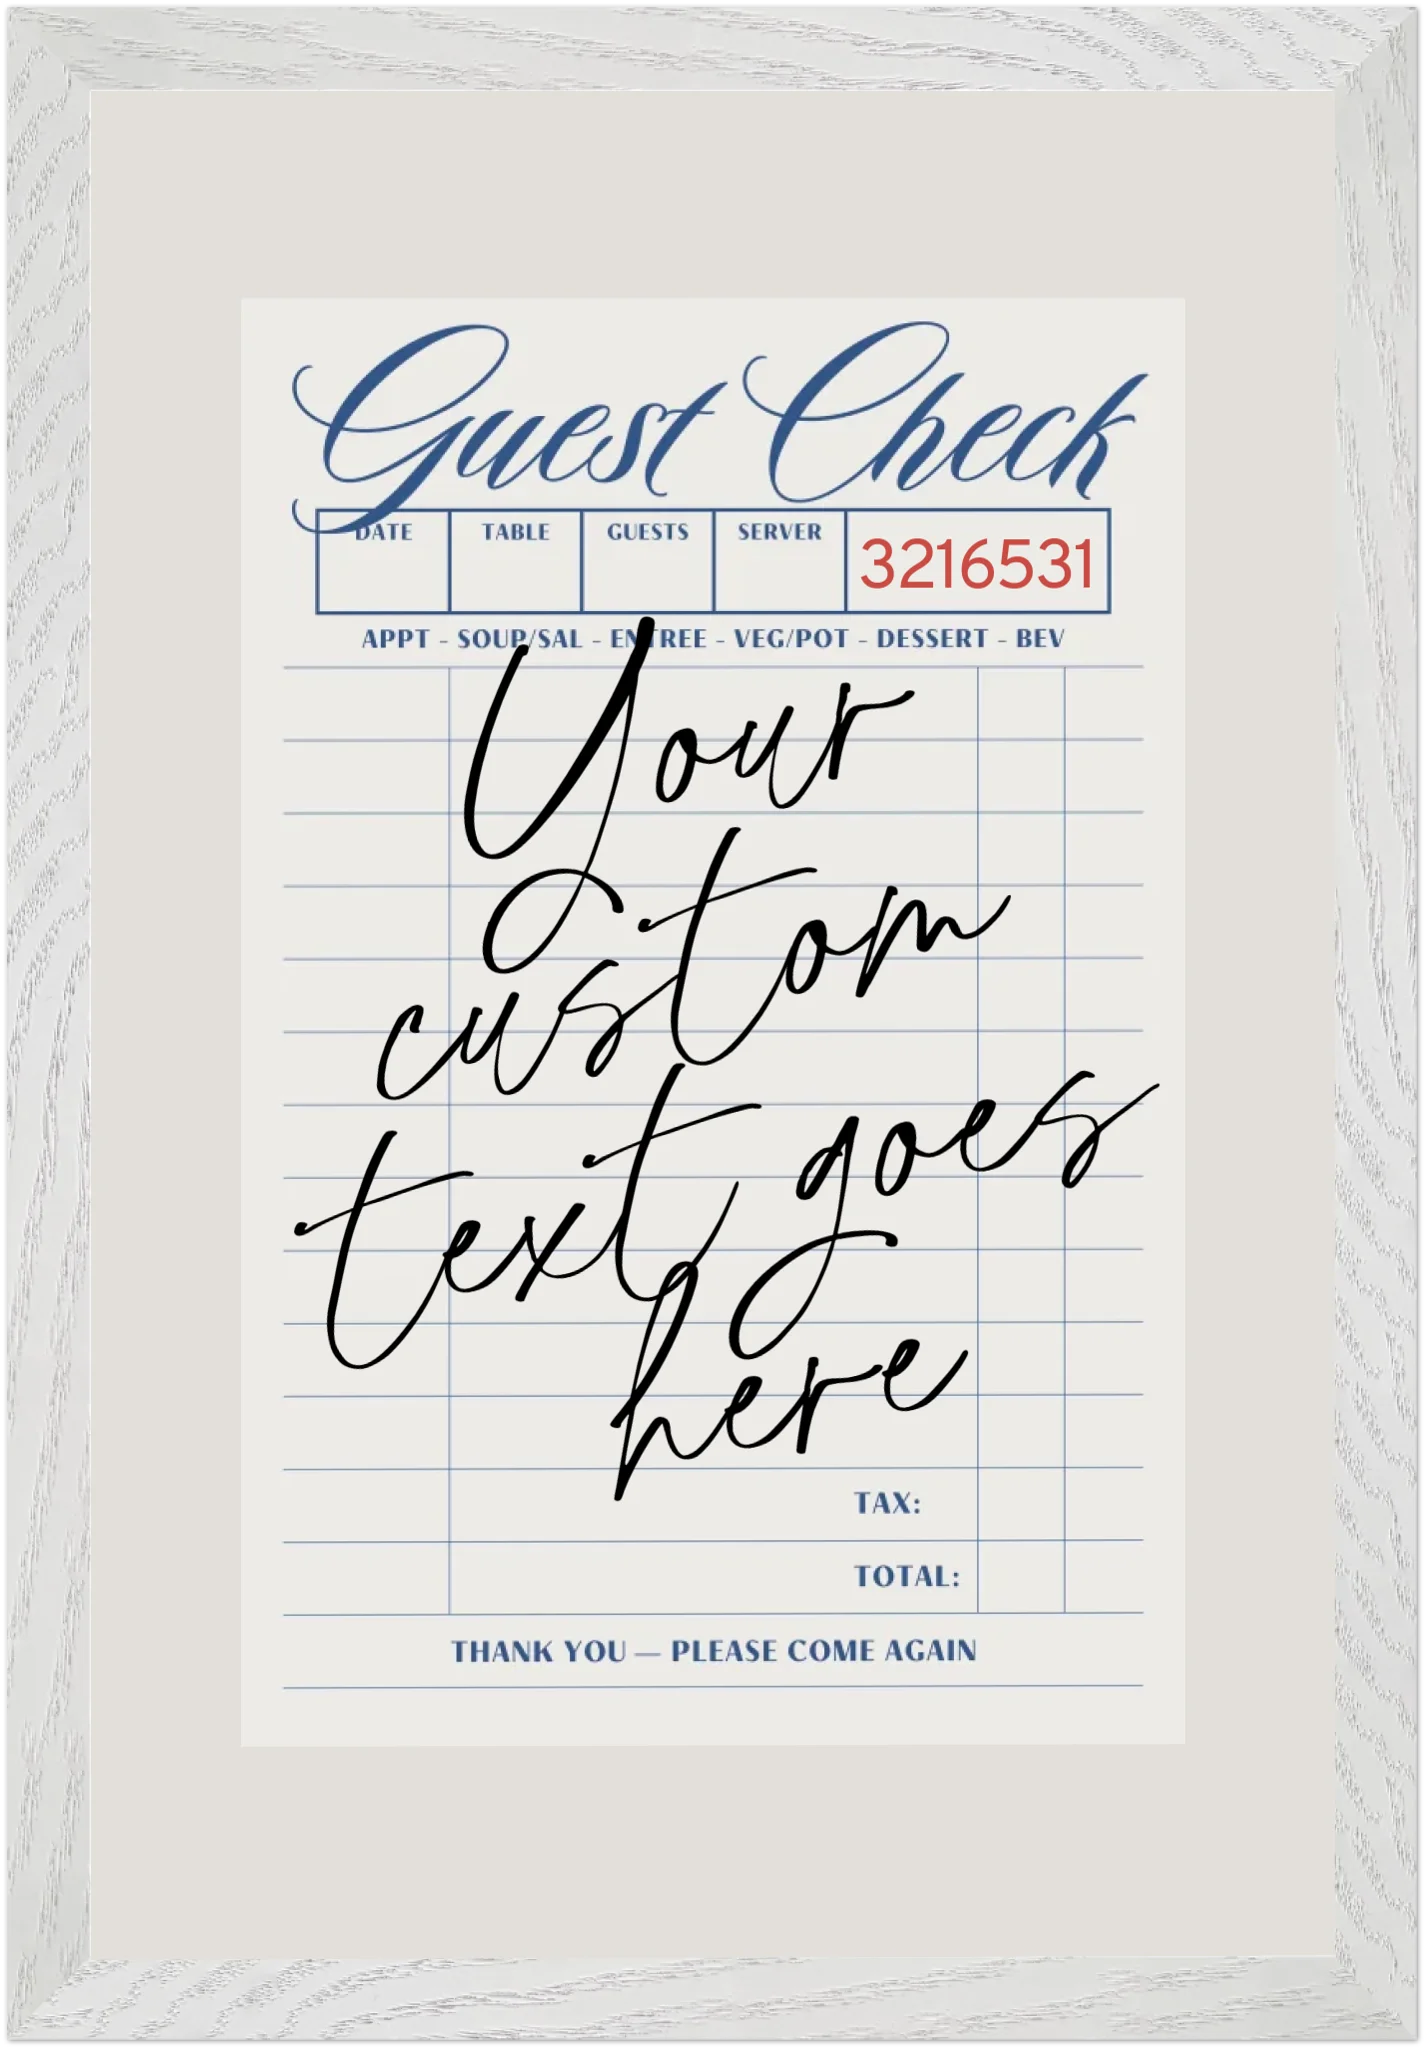 Guest Check
DATE TABLE GUESTS SERVER 3216531
APPT - SOUP/SAL - ENTREE - VEG/POT - DESSERT - BEV
Your
custom
text goes
here
TAX:
TOTAL:
THANK YOU — PLEASE COME AGAIN